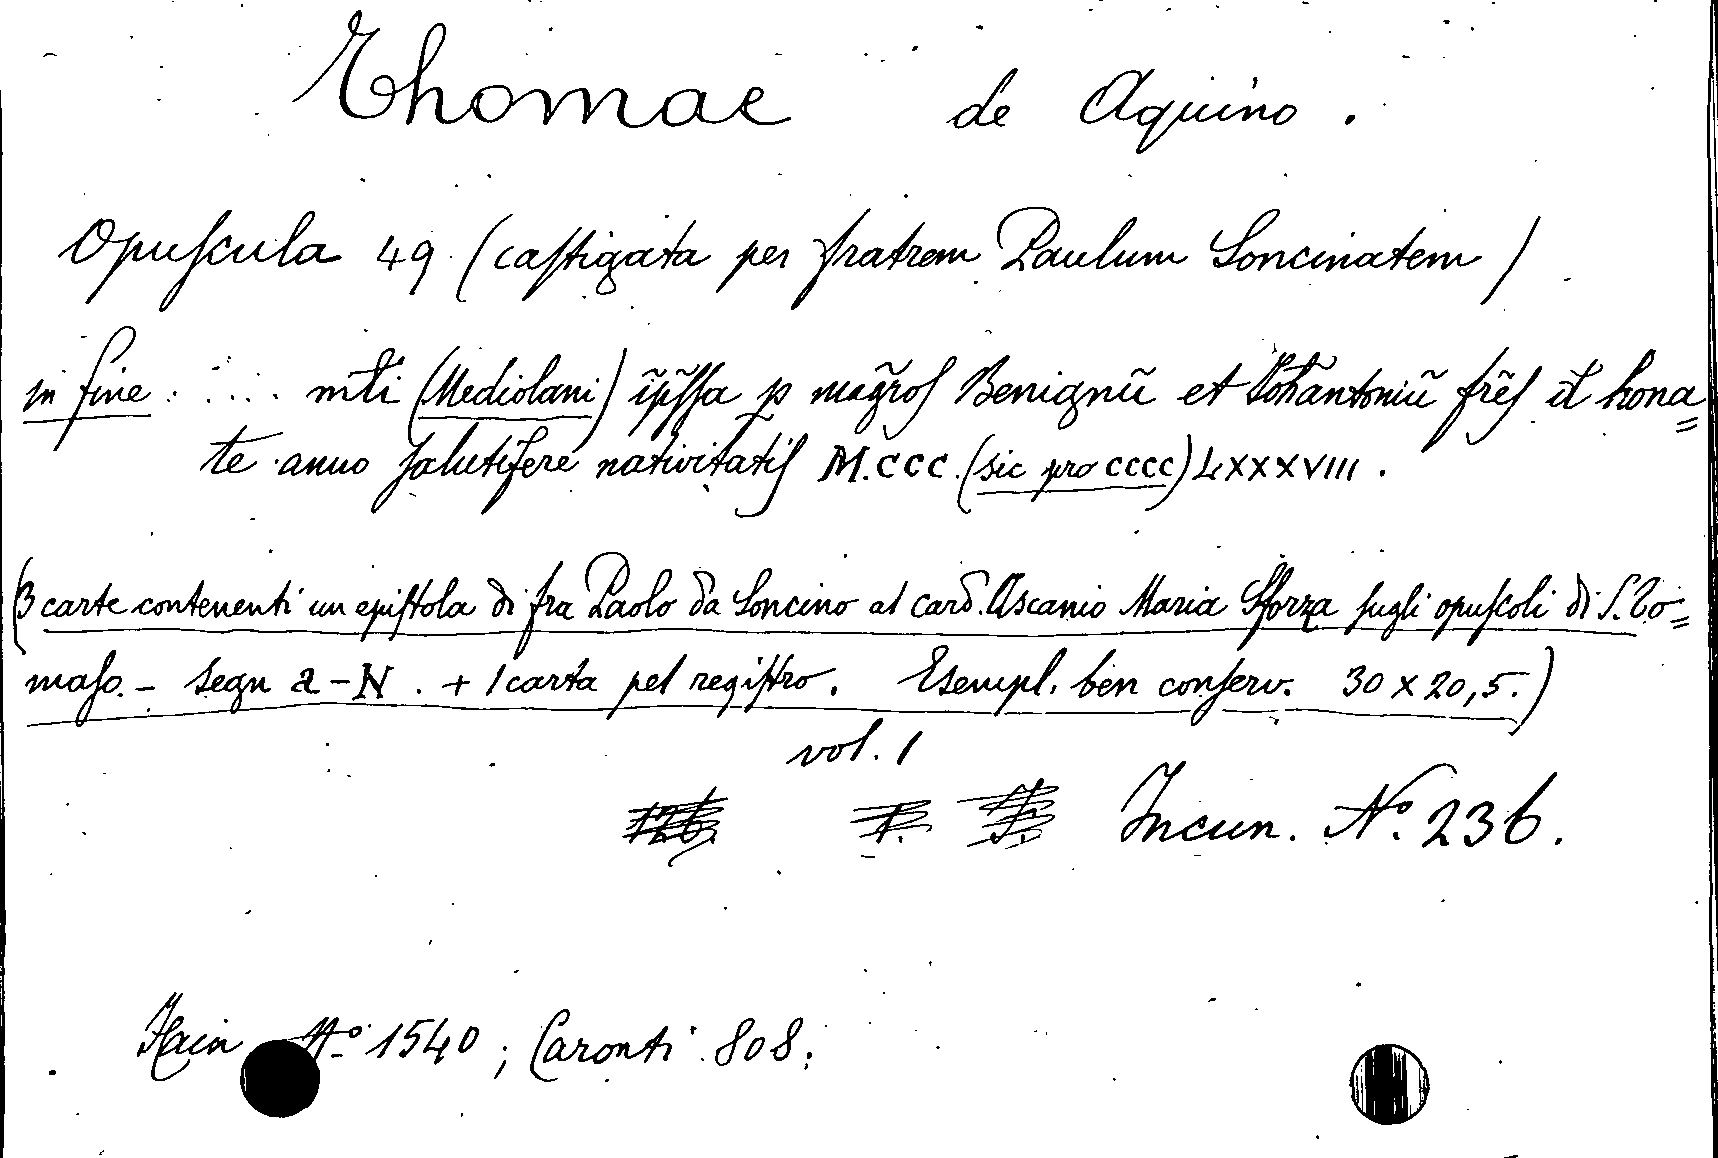 Thomae de Aquino.
Opuſcula 49 (caſtigata per fratrem Paulum Soncinatem)
in fine ..... mli (Mediolani) īp̄ſſa p mag̃roſ Benignū et Iohãntoniū frēſ d̄ hona=
te anno ſalutifere nativitatiſ M.CCC.(sic pro CCCC) LXXXVIII.
(3 carte contenenti un epiſtola di fra Paolo da Soncino al card. Aſcanio Maria Sforza ſugli opuſcoli di S. To=
maſo. – Segn a – N. + 1 carta pel regiſtro. Esempl. ben conſerv. 30 x 20,5.)
vol. 1
Incun. Nº. 236.
Hain Nº 1540; Caronti 808.